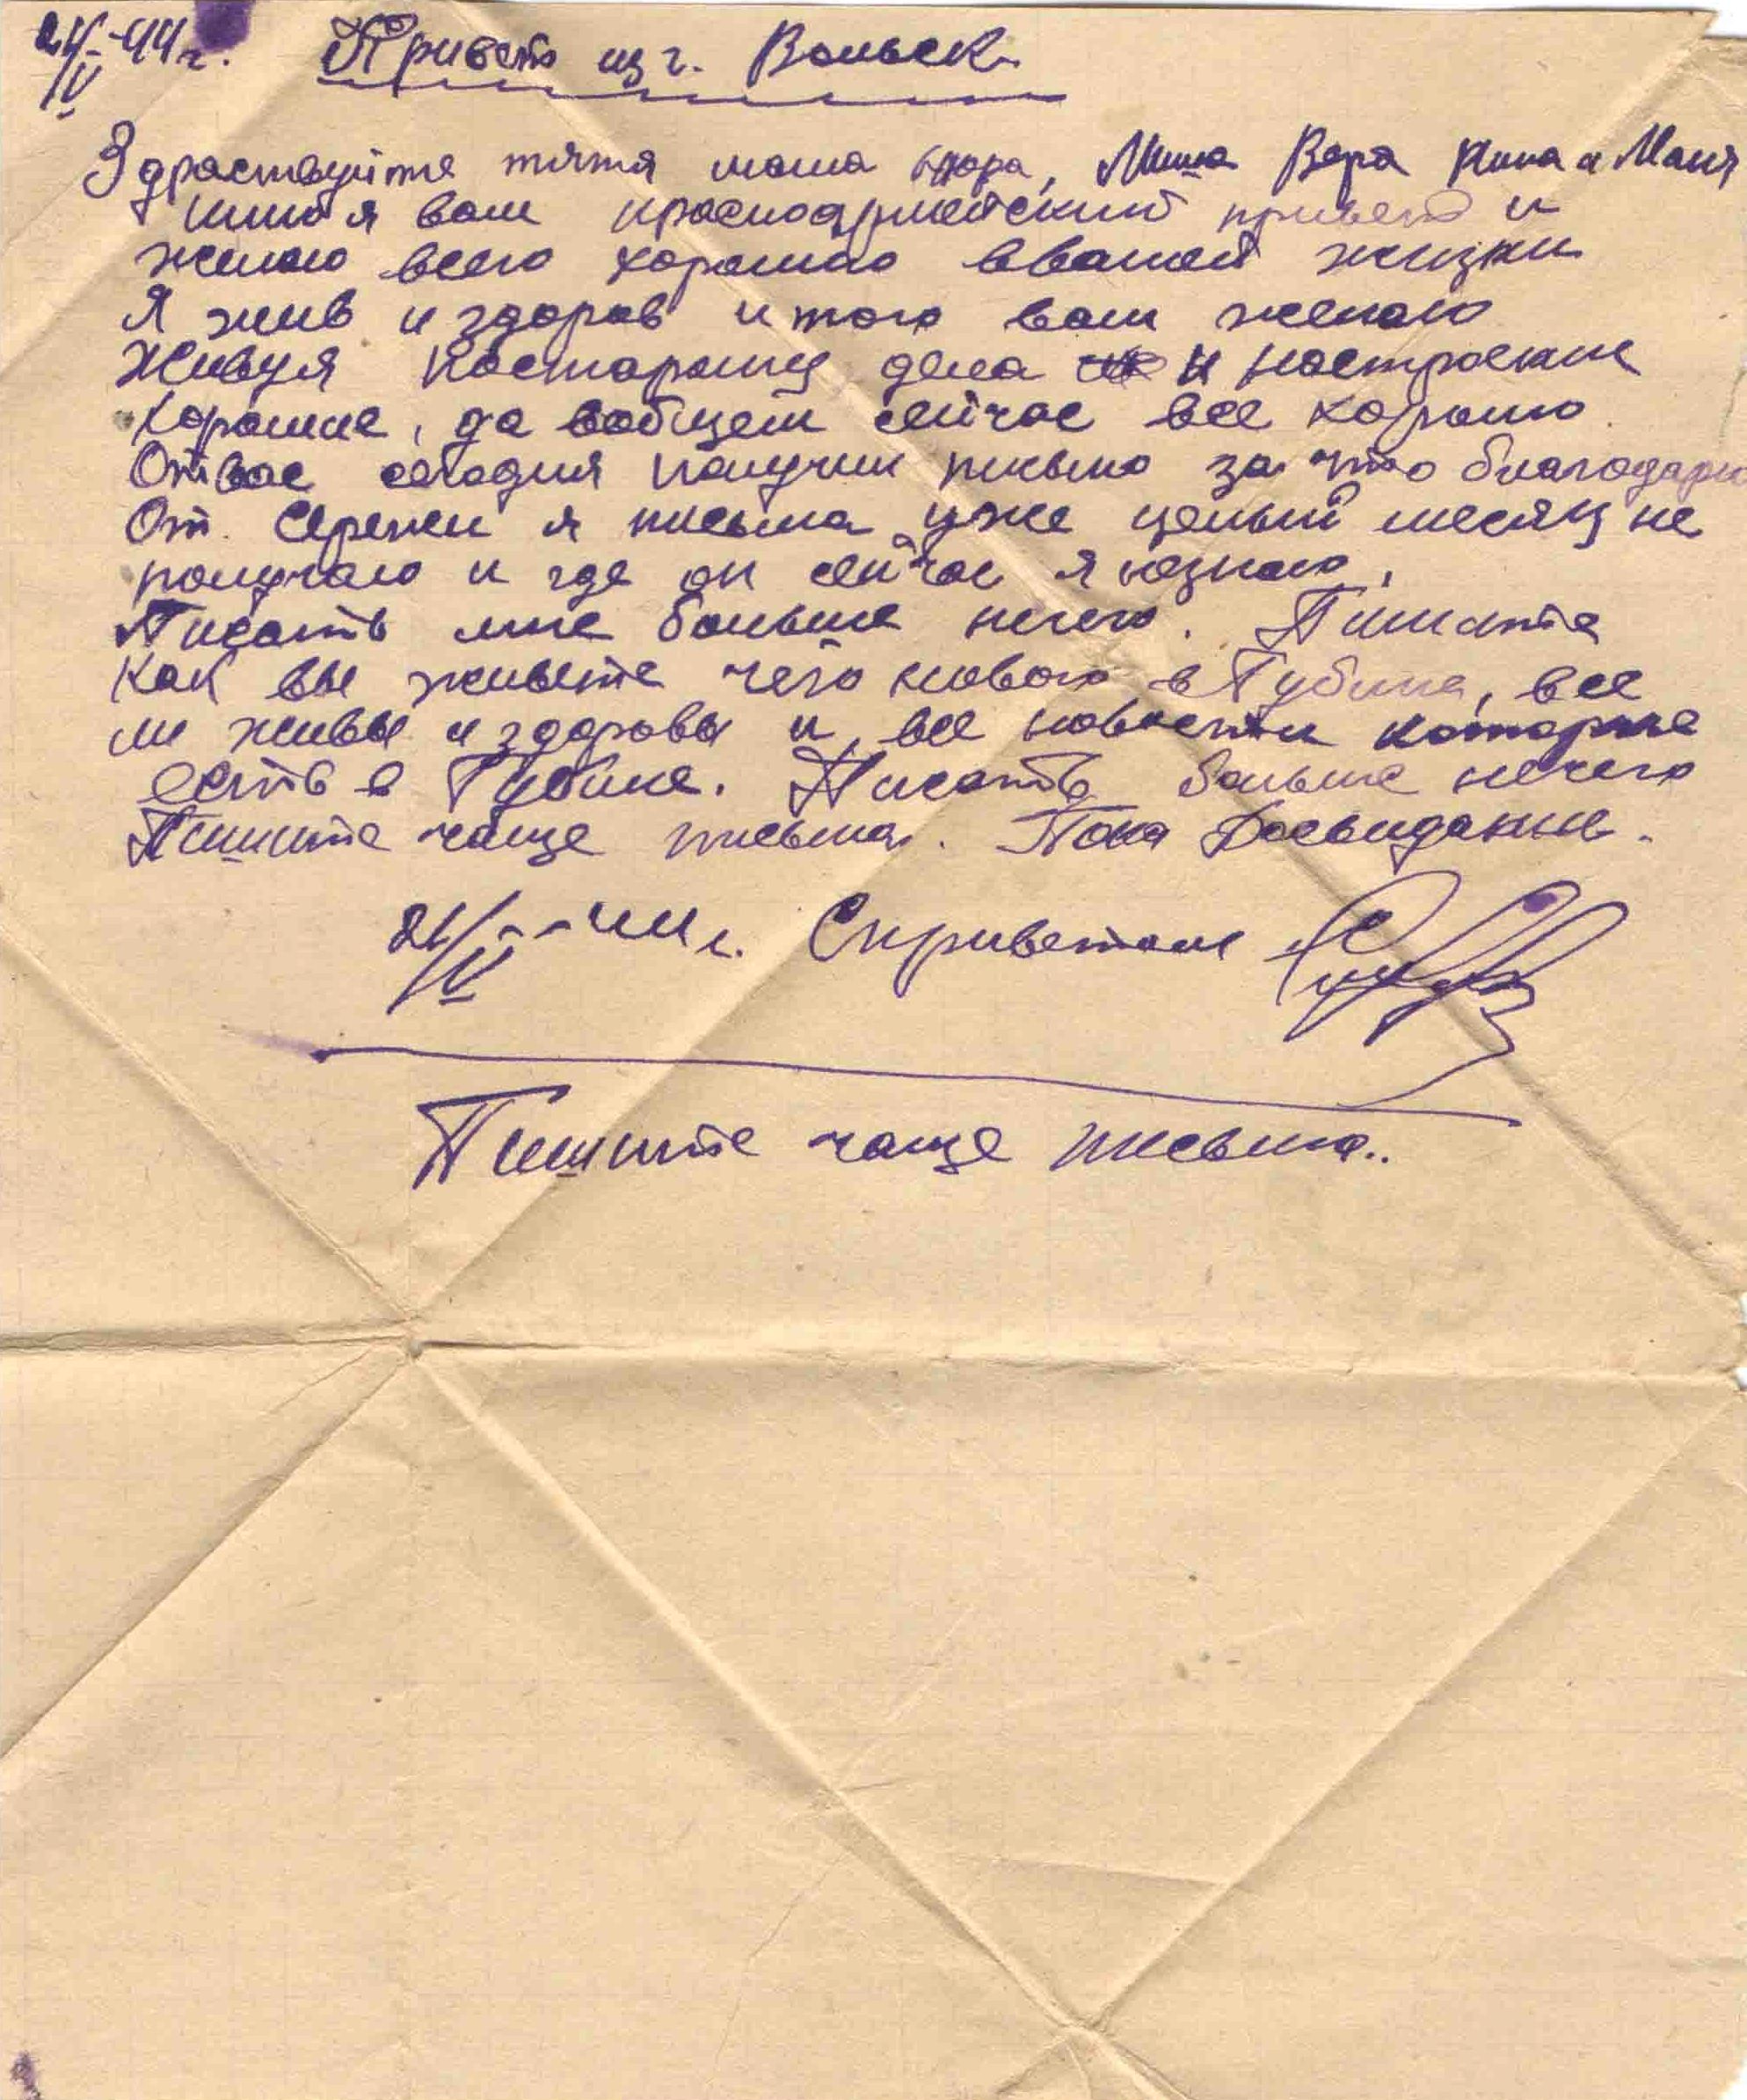 24/IV-44 г. Привет из г. Вольск
Здраствуйте тятя мама Шура, Миша Вера Нина и Маня
шлю я вам красноармейский привет и
желаю всего хорошего ввашей жизни
Я жив и здоров и того вам желаю
Живуя постарому дела и настроение
хорошие, да вообщем сейчас все хорошо.
Отвас сегодня получил письмо за что благодарю
От Сережи я письма уже целый месяц не
получаю и где он сейчас я незнаю,
Писать мне больше нечего. Пишите
как вы живете чего нового в Губине, все
ли живы и здоровы и все новости которые
есть в Губине. Писать больше нечего
Пишите чаще письма. Пока Досвидание.
24/IV-44 г. Сприветом
Пишите чаще письма..